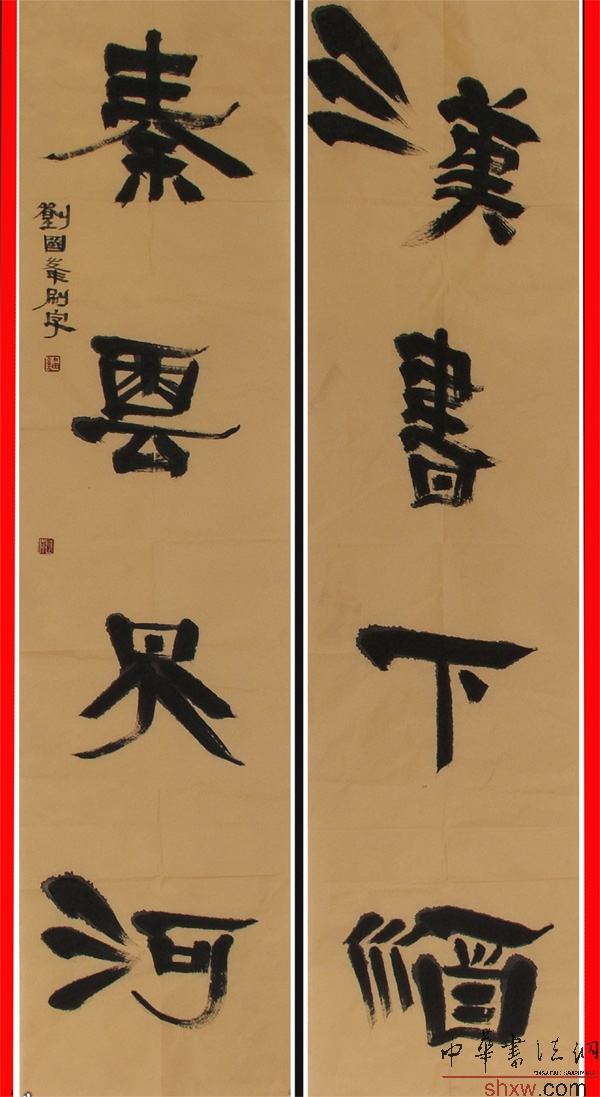 漢書下酒
秦雲界河
劉國峯刷字
中華書法網
shxw.com